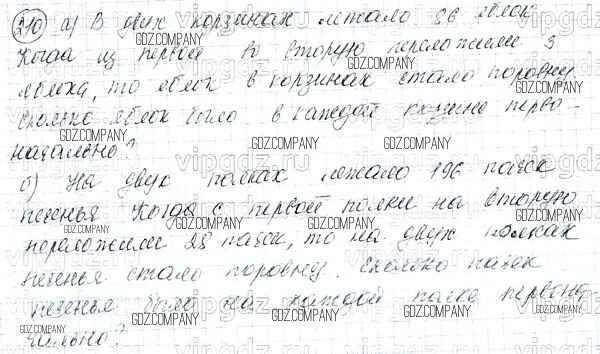 210 а) В двух корзинах лежало 86 яблок
Когда из первой во вторую переложили 3
яблока, то яблок в корзинах стало поровну.
Сколько яблок было в каждой корзине перво-
начально?
б) На двух полках лежало 196 пачек
печенья Когда с первой полки на вторую
переложили 28 пачек, то на двух полках
печенья стало поровну. Сколько пачек
печенья было на каждой полке первона
чально?